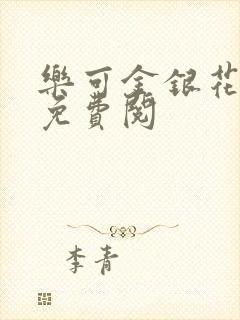 樂可金銀花
免費閱
李青